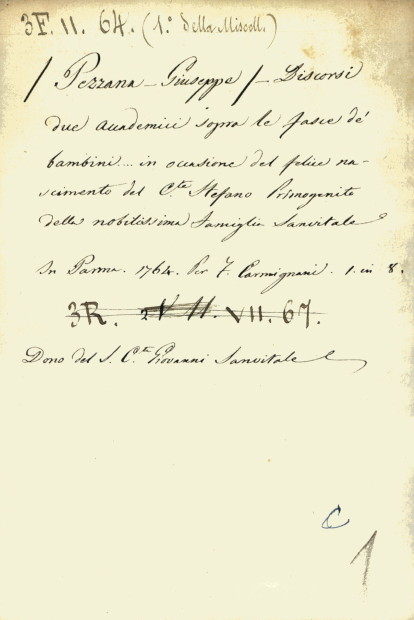 3F. II. 64. (1.° della Miscell.)
/ Pezzana - Giuseppe / - Discorsi
due Academici sopra le fasce dè
bambini.... in occasione del felice na-
scimento del C.te Stefano Primogenito
della nobilissima Famiglia Sanvitale
In Parma. 1764. Per F. Carmignani. 1. in 8.
3R. VII. 67.
Dono del S. C.te Giovanni Sanvitale
C
1